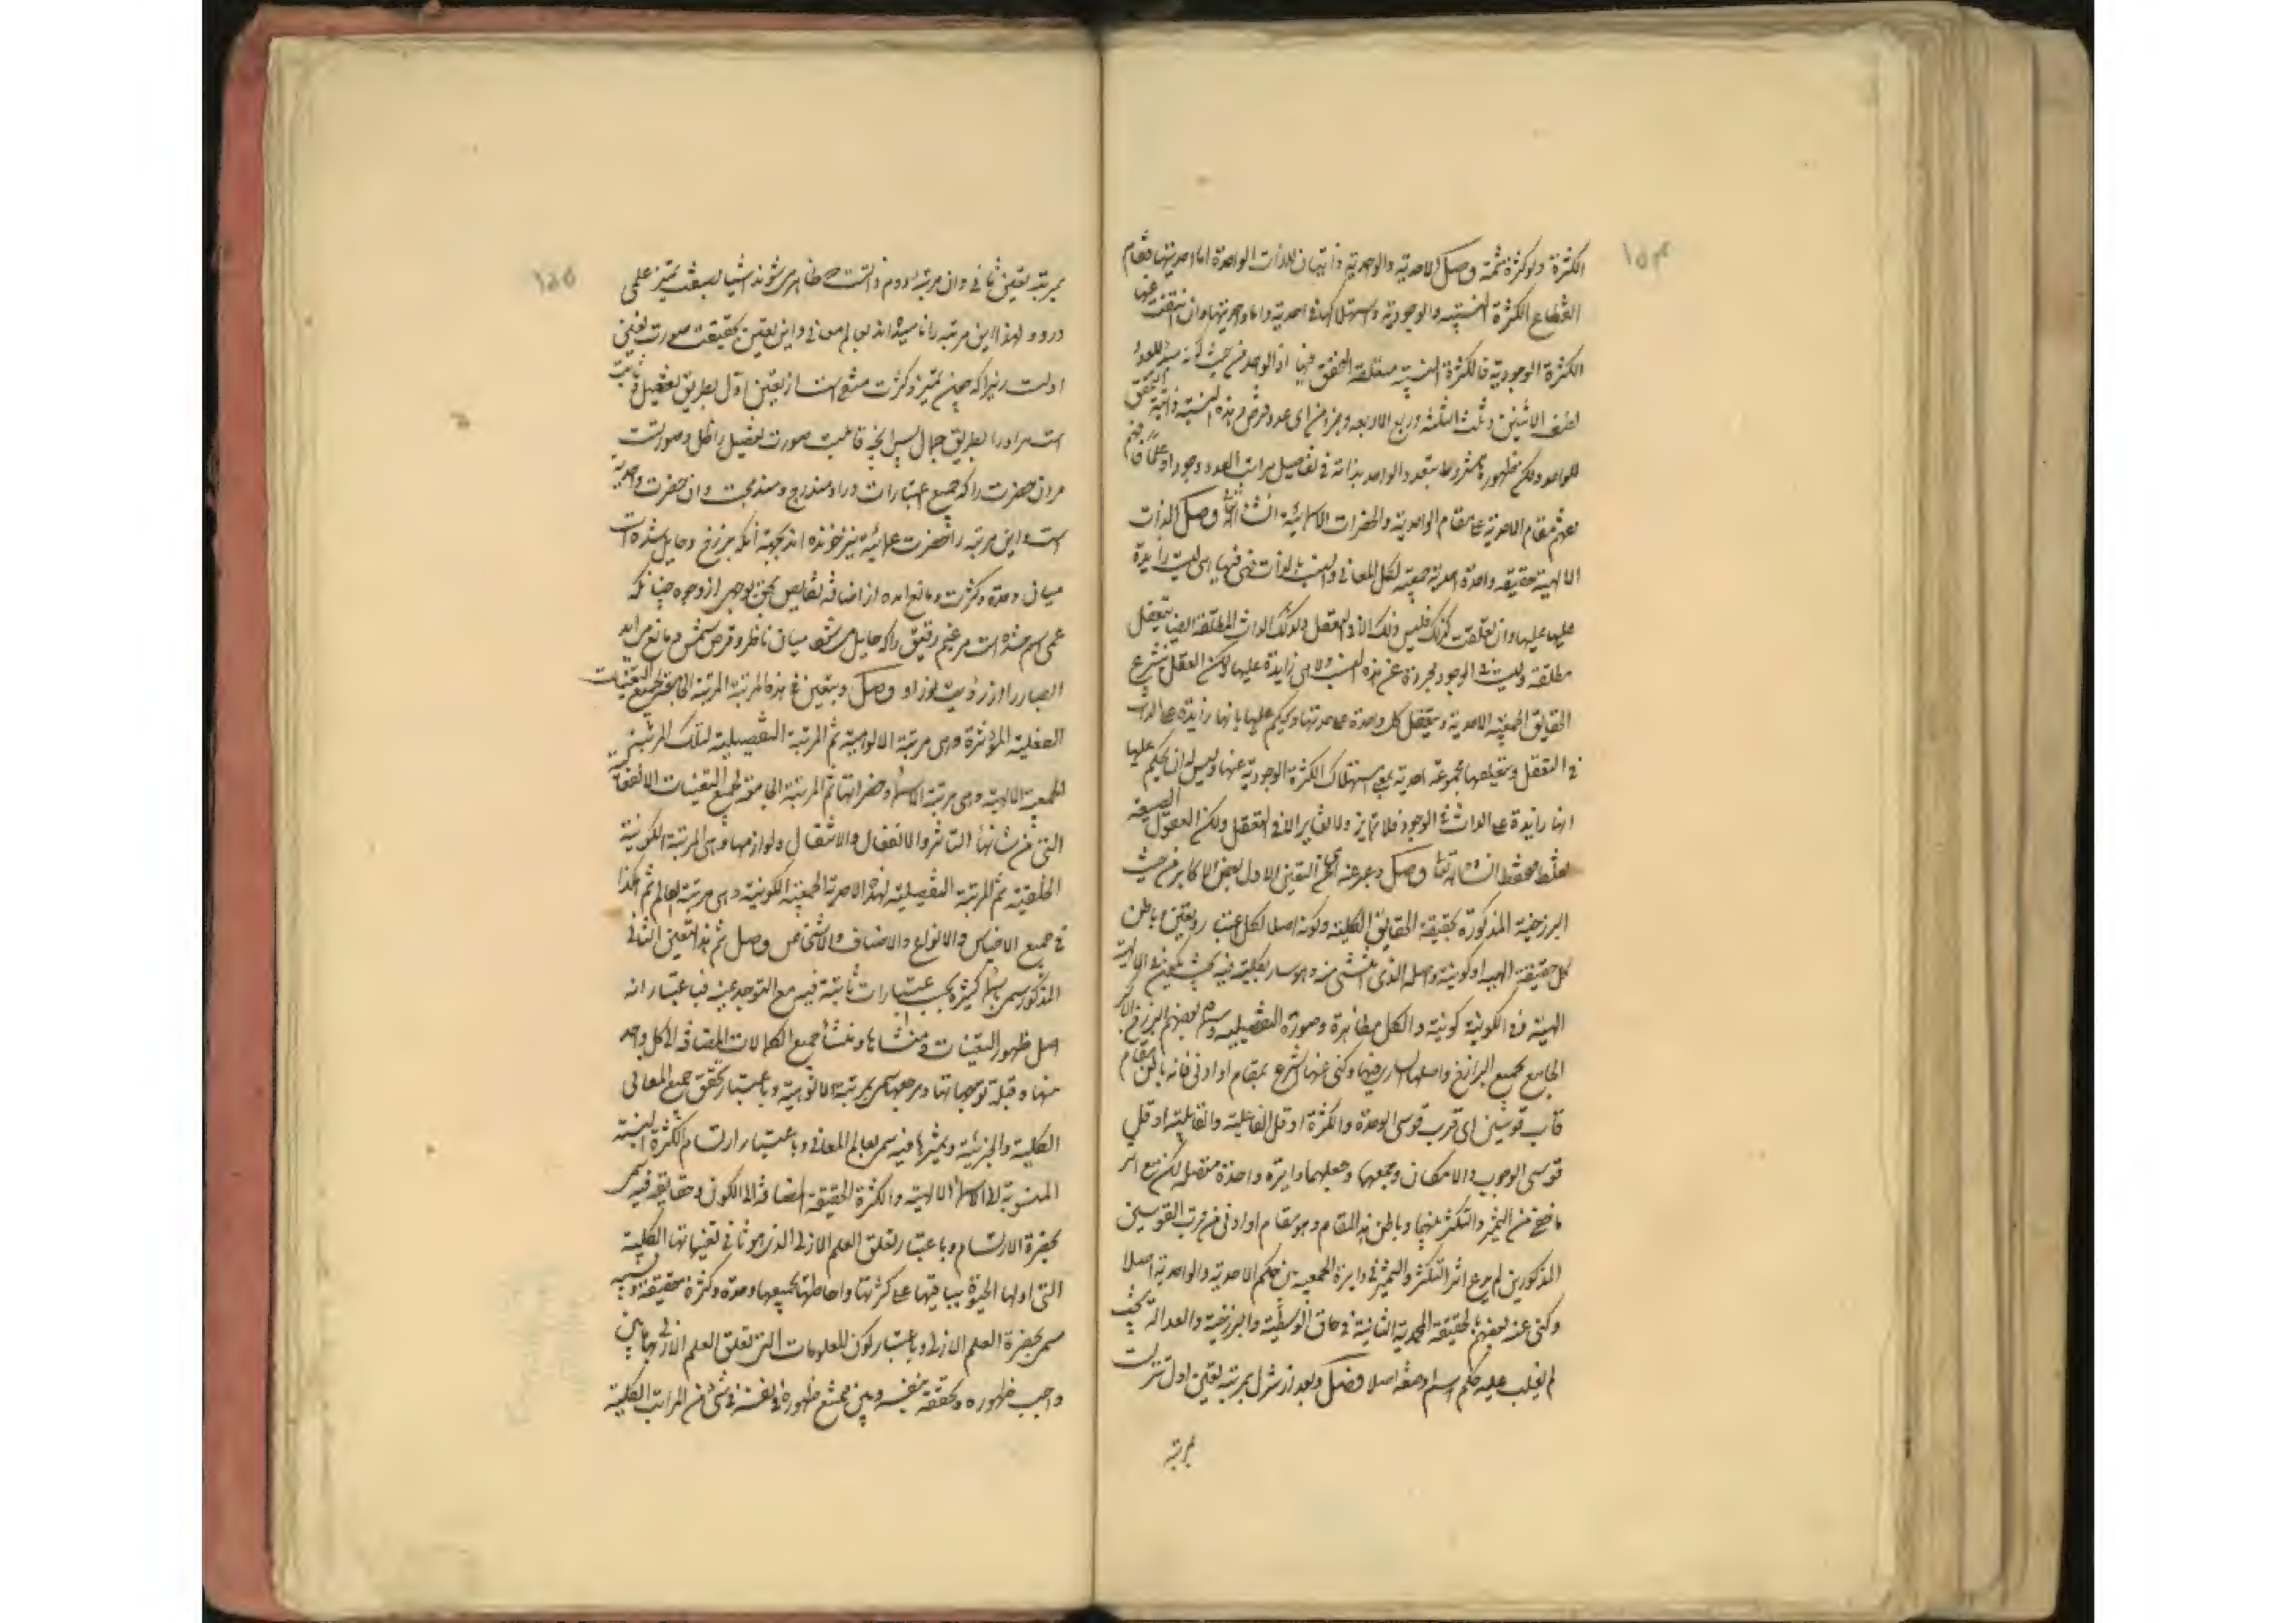 ١٥٤
الكثرة ولا كثرة ثمة وصل الاحدية والواحدية ذاتيتان للذات الواحدة اما احديتها فمقام
انقطاع الكثرة النسبية والوجودية واستهلاكها في احدية الذات واما واحديتها وان انتفت عنها
الكثرة الوجودية فالكثرة النسبية متعلقة التحقق فيها اذ الواحد من حيث انه مبدأ للعدد
نصف الاثنين وثلث الثلثة وربع الاربعة وجزء من اى عدد فرض وهذه النسبة ذاتية التحقق
للواحد ولكن ظهورها مشروط بتعدد الواحد بذاته في تفاصيل مراتب العدد وجودا وعلما فافهم
مقام الاحدية مقام الواحدية والحضرات الاسمائية ان شاء الله وصل الذات
الالهية حقيقة واحدة احدية جمعية لكل المعانى والنسب الذات فهى فيها هى ليست زايدة
عليها وان تعلقت كذلك فليس ذلك الا في التعقل وكذلك الذات المطلقة ايضا تتعقل
مطلقة وليست في الوجود مجردة عن هذه النسب ولا هى زايدة عليها ولكن العقل ينتزع
الحقايق الجمعية الاحدية ويتعقل كل واحدة على حدتها ويحكم عليها بانها زايدة على الذات
في التعقل ويتعقلها مجموعة احدية مع استهلاك الكثرة الوجودية عنها وليس له ان يحكم عليها
انها زايدة على الذات في الوجود فلا تمايز ولا تغاير الا في التعقل ولكن العقول الضعيفة
تغلط تحفظ ان شاء الله تعالى وصل وعبر عنه اى عن التعين الاول بعض الاكابر من حيث
البرزخية المذكورة بحقيقة الحقايق الكلية وكونه اصلا لكل اعتبار وتعين وباطن
كل حقيقة الهية او كونية واصله الذى انتشئ منه وهو سار بكليته فيه بحيث يكون في الالهية
الهية وفي الكونية كونية والكل مظاهره وصوره التفصيلية وسماه بعضهم البرزخ الاكبر
الجامع لجميع البرازخ واصلها السارى فيها وكنى عنها الشرع بمقام او ادنى فانه باطن مقام
قاب قوسين اى قرب قوسى الوحدة والكثرة او قل الفاعلية والقابلية او قل
قوسى الوجوب والامكان وجمعهما وجعلهما دايرة واحدة متصلة لكن مع اثر
ما خفى من التميز والتكثر بينهما وباطن هذا المقام وهو مقام او ادنى من قرب القوسين
المذكورين لم يدع اثر التكثر والتميز في دايرة الجمعية بين حكم الاحدية والواحدية اصلا
وكنى عنه بعضهم بالحقيقة المحمدية الثابتة في حاق الوسطية والبرزخية والعدالة بحيث
لم يغلب عليه حكم اسم او صفة اصلا وصل وبعد از تنزل بمرتبه تعين اول تنزلست
بمرتبه
١٥٥
بمرتبه تعين ثانى وان مرتبه دوم ذاتست كه ظاهر مى شوند اشيا بصفت تميز علمى
درو و لهذا اين مرتبه را ناميده اند بعالم معانى واين تعين بحقيقت صورت تعين
اولست زيرا كه چون تميز وكثرت منتفى است از تعين اول بطريق تفصيل و ثابت
است مر او را بطريق اجمال پس انچه قابليت صورت تفصيل را ظل وصورتست
مران حضرت را كه جميع اعتبارات درو مندرج ومندمجست وان حضرت واحديت
است واين مرتبه را حضرت عمائيه نيز خوانده اند بجهة انكه برزخ وحايل شده است
ميان وحدت وكثرت ومانع امده از اضافه نقايص بحق بوجهى از وجوه چنانكه
عمى اسم شده است مر غيم رقيق را كه حايل مى شود ميان ناظر وقرص شمس ومانع مى ايد
ابصار را از رؤيت نور او وصل ويتعين في هذه المرتبة المرتبة الجامعة لجميع التعينات
الفعلية المؤثرة وهى مرتبة الالوهية ثم المرتبة التفصيلية لتلك المرتبة
الجمعية الالهية وهى مرتبة الاسماء وحضراتها ثم المرتبة الجامعة لجميع التعينات الانفعالية
التى من شانها التاثر والانفعال والانتقال ولوازمها وهى المرتبة الكونية
الخلقية ثم المرتبة التفصيلية لهذه الاحدية الجمعية الكونية وهى مرتبة العالم ثم هكذا
في جميع الاجناس والانواع والاصناف والاشخاص وصل ثم هذا التعين الثانى
المذكور يسمى باسماء كثيرة بحسب اعتبارات ثابتة فيه مع التوحد عينه فباعتبار انه
اصل ظهور التعينات ومنشاها ومنشأ جميع الكمالات المضافة الى كل واحد
منها وقبلة توجهاتها ومرجعها يسمى بمرتبة الالوهية وباعتبار تحقق جميع المعانى
الكلية والجزئية وتميزها فيه يسمى بعالم المعانى وباعتبار ارتسام الكثرة النسبية
المنسوبة الى الاسماء الالهية والكثرة الحقيقية المضافة الى الكون وحقايقه فيه يسمى
بحضرة الارتسام وباعتبار تعلق العلم الازلى الذى هو ثانى تعيناتها الكلية
التى اولها الحيوة بباقيها على كثرتها واحاطتها بجميعها وحدة وكثرة حقيقة ونسبية
يسمى بحضرة العلم الازلى وباعتبار كون المعلومات التى تعلق العلم الازلى بها بين
واجب ظهوره وتحققه بنفسه وبين ممتنع ظهوره في نفسه في شئ من المراتب الكلية